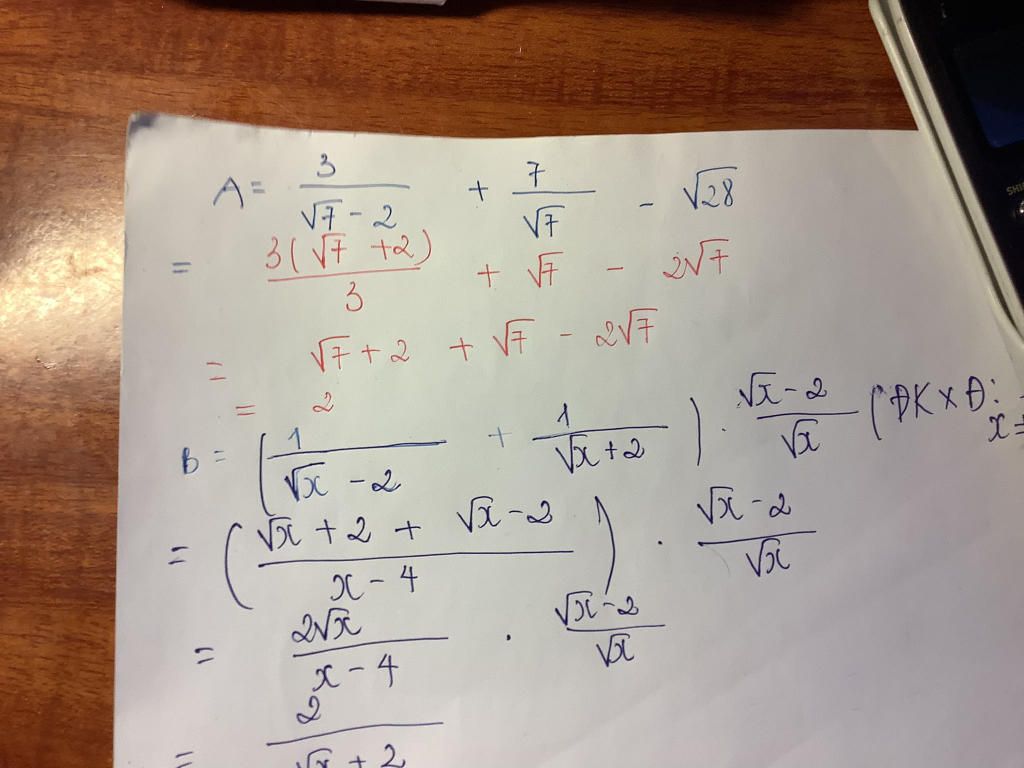 A = 3/(√7 - 2) + 7/√7 - √28
= 3(√7 + 2)/3 + √7 - 2√7
= √7 + 2 + √7 - 2√7
= 2
B = (1/(√x - 2) + 1/(√x + 2)) . (√x - 2)/√x (ĐKXĐ:
x
= ((√x + 2 + √x - 2)/(x - 4)) . (√x - 2)/√x
= 2√x/(x - 4) . (√x - 2)/√x
= 2/(√x + 2)